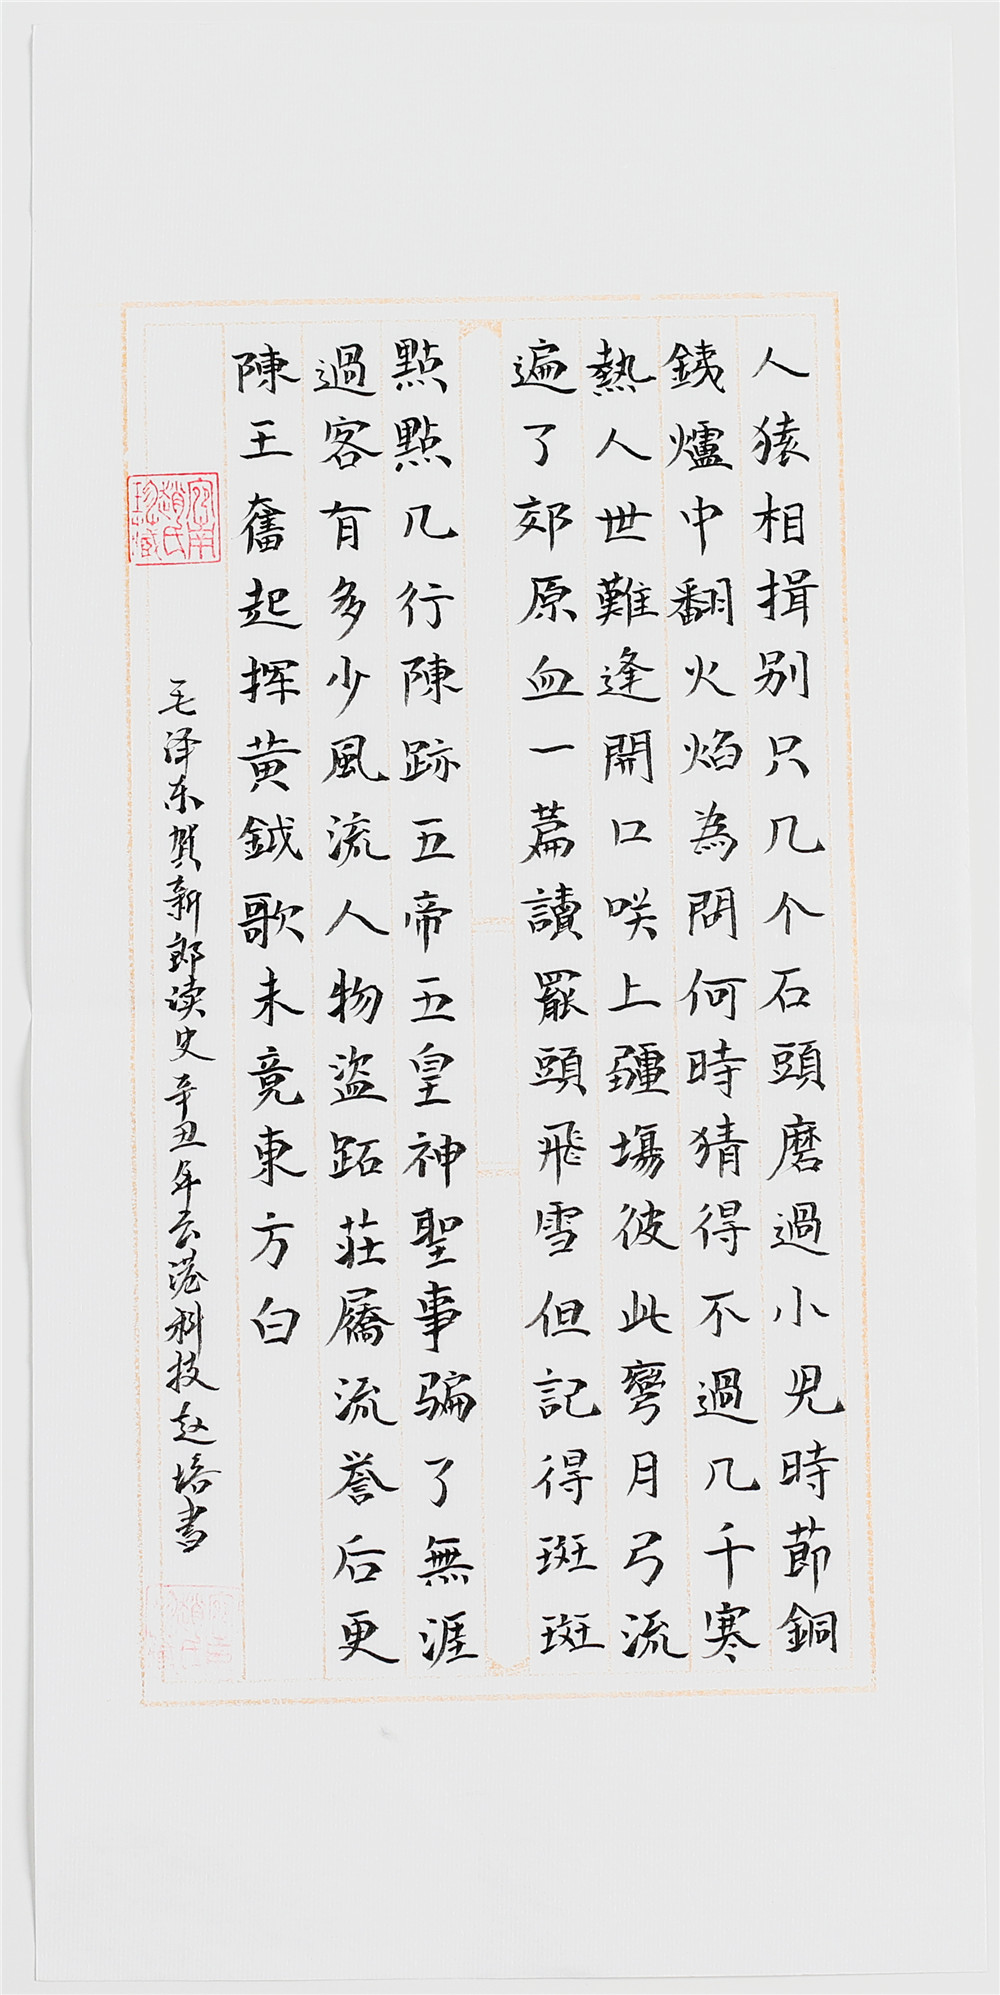 人猿相揖别只几个石頭磨過小児時節銅
銕爐中翻火焰為問何時猜得不過几千寒
熱人世難逢開口咲上疆場彼此彎月弓流
遍了郊原血一篇讀罷頭飛雪但記得斑斑
點點几行陳跡五帝五皇神聖事骗了無涯
過客有多少風流人物盜跖莊屩流誉后更
陳王奮起挥黄鉞歌未竟東方白
毛泽东贺新郎读史辛丑年云港科技赵培书